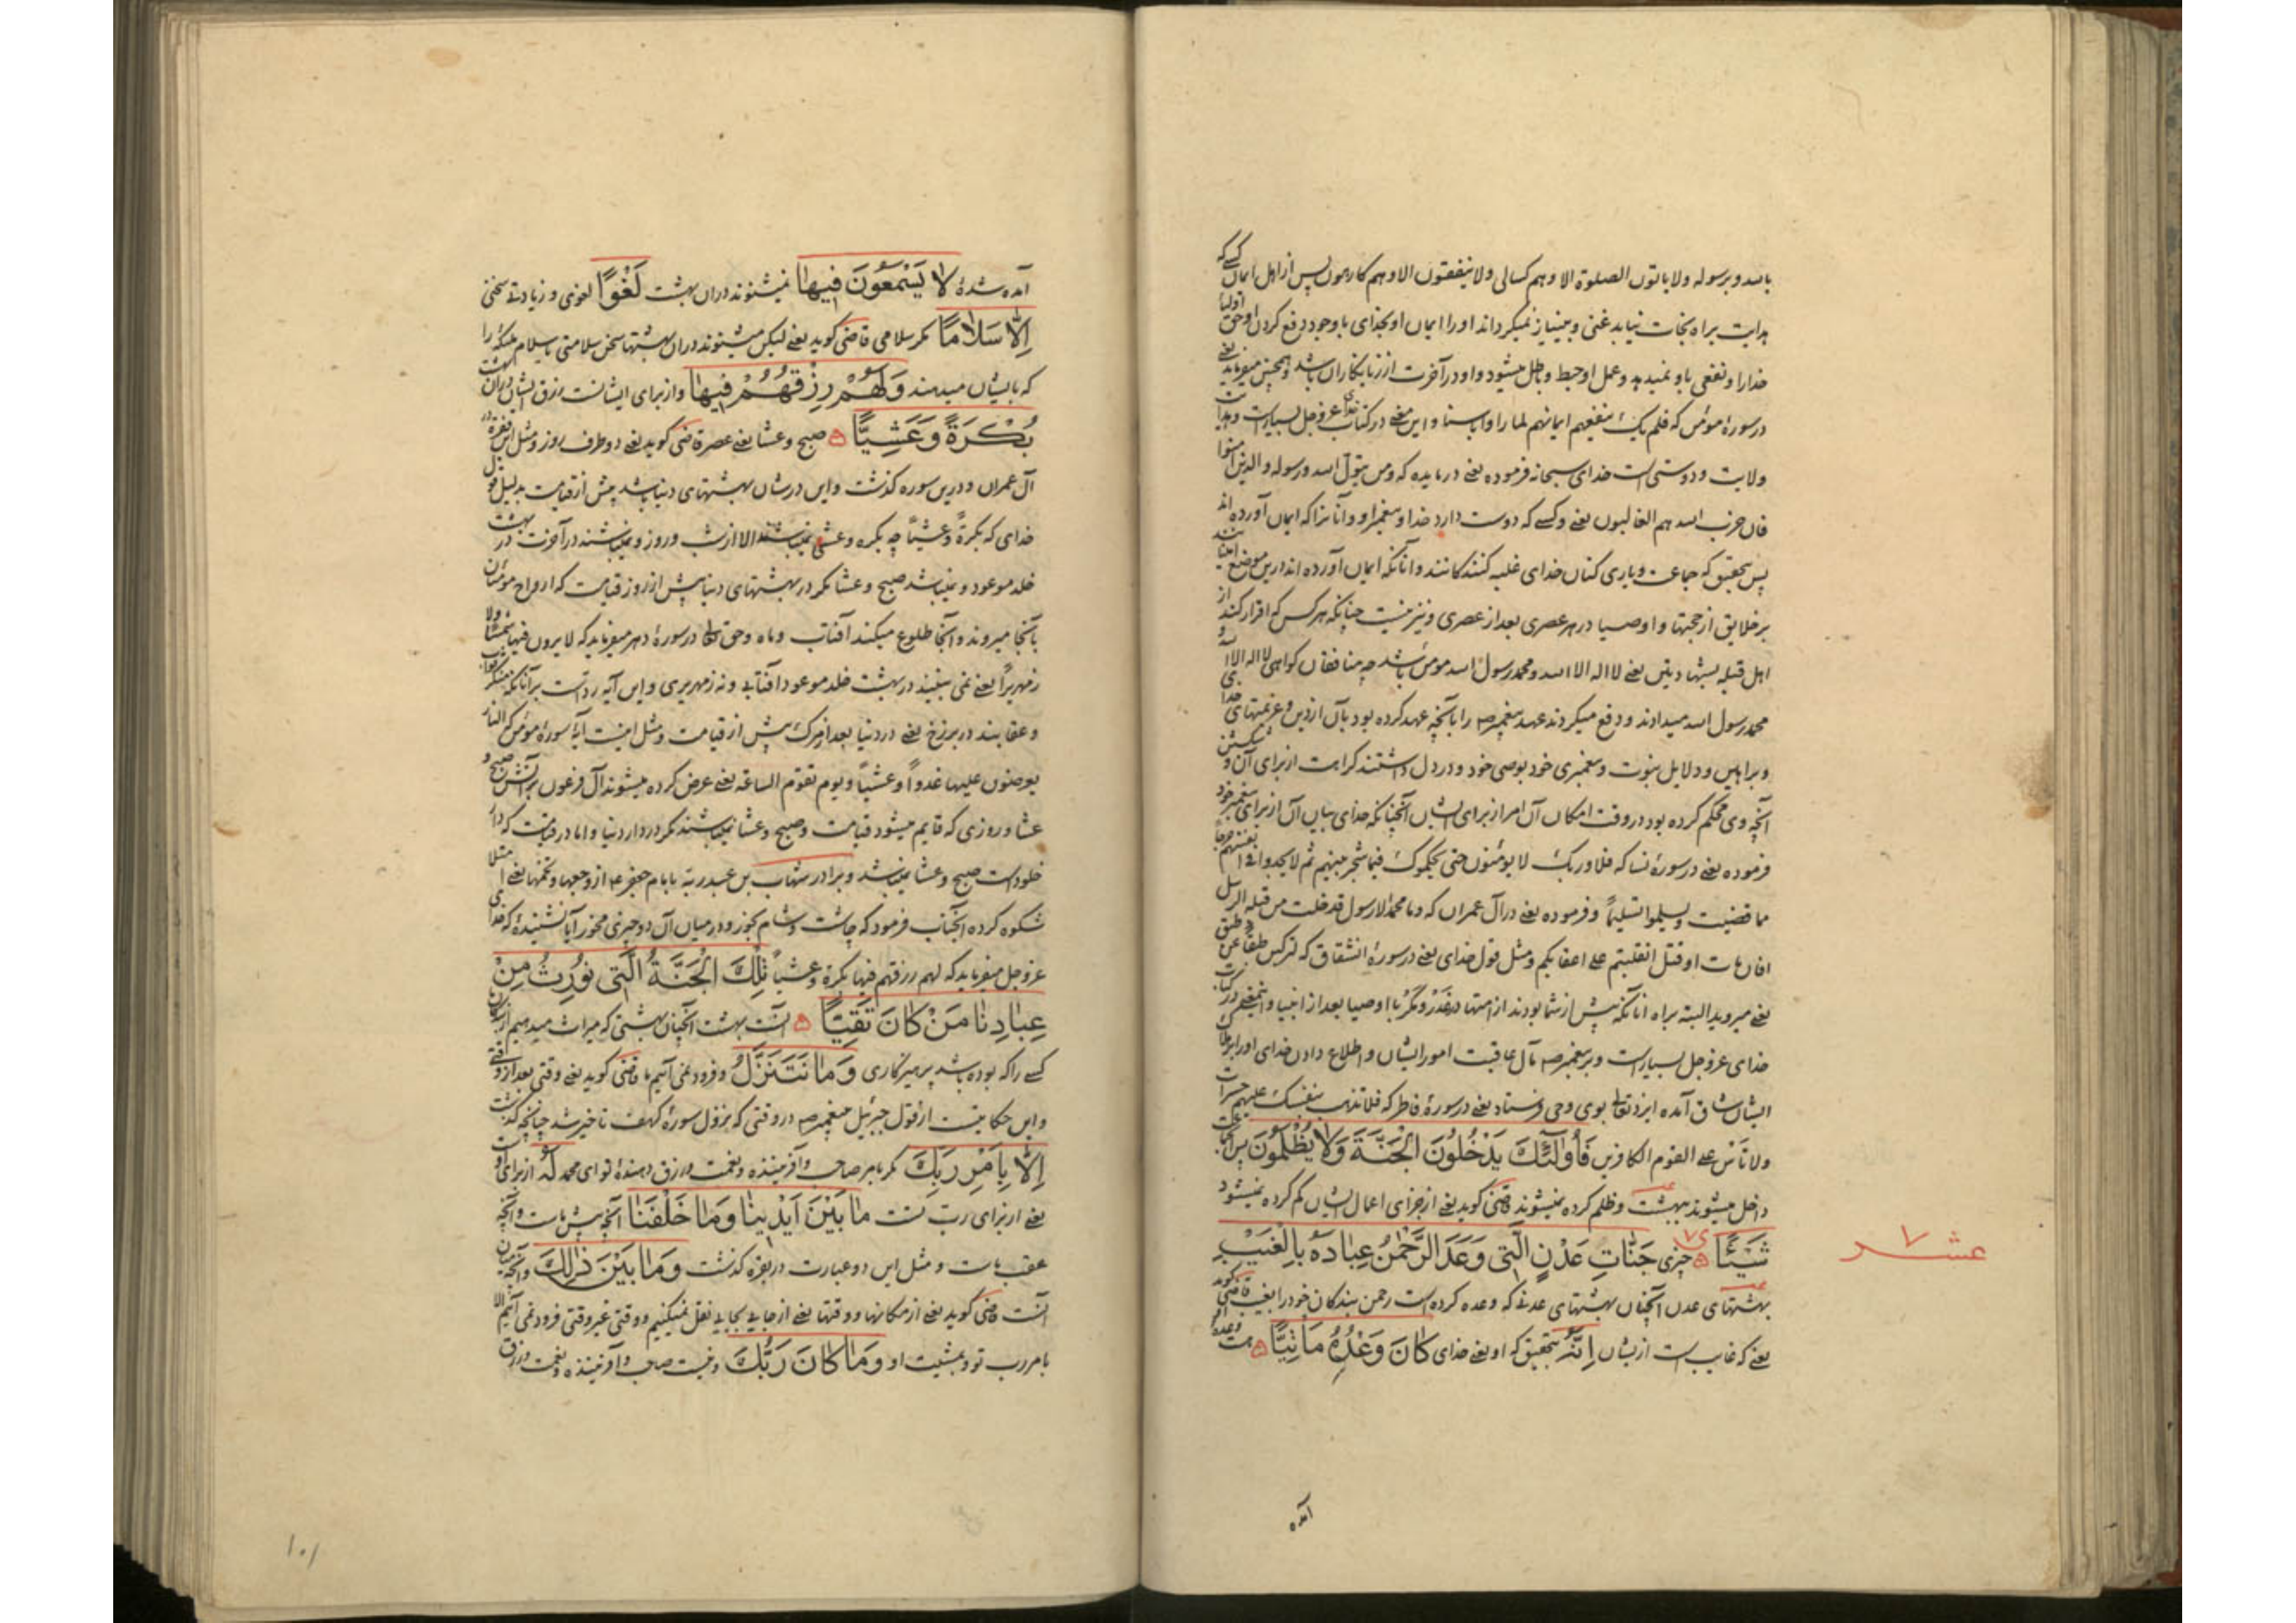 بالله و برسوله ولا یاتون الصلوة الا و هم کسالی ولا ینفقون الا و هم کارهون پس از اهل ایمان کسی که
هدایت براه نجات نیابد غنی و بینیاز نمیکرداند او را ایمان او بخدای با وجود دفع کردن او حق اولیا
خدا را و نفعی باو نمیدهد و عمل او حبط و باطل میشود و او در آخرت از زیانکاران باشد و همچنین میفرماید یعنی
در سورهٔ مؤمن که فلم یک ینفعهم ایمانهم لما راوا باسنا و این معنی در کتاب خدای عز و جل بسیارست و هدایت
ولایت و دوستی است خدای سبحانه فرموده یعنی در مایده که و من یتول الله و رسوله والذین آمنوا
فان حزب الله هم الغالبون یعنی و کسی که دوست دارد خدا و پیغمبر او و آنانرا که ایمان آورده اند
پس بتحقیق که جماعت و یاری کنان خدای غلبه کنندکانند و آنانکه ایمان آورده اند درین موضع
بر خلایق از حجتها و اوصیا در هر عصری بعد از عصری و نیز نیست چنانکه هر کس که اقرار کند از
اهل قبله بشهادتین یعنی لا اله الا الله و محمد رسول الله مؤمن باشد چه منافقان کواهی لا اله الا الله و
محمد رسول الله میدادند و دفع میکردند عهد پیغمبر ص را بآنچه عهد کرده بود بآن از دین و عزیمتهای خدا
و براهین و دلایل نبوت و پیغمبری خود بوصی خود و در دل داشتند کراهت از برای آن و شکستن
آنچه وی محکم کرده بود در وقت امکان آن امر از برای ایشان آنچنانکه خدای بیان آن از برای پیغمبر خود
فرموده یعنی در سورهٔ نسا که فلا و ربک لا یومنون حتی یحکموک فیما شجر بینهم ثم لا یجدوا فی انفسهم حرجا
مما قضیت و یسلموا تسلیماً و فرموده یعنی در آل عمران که و ما محمد الا رسول قد خلت من قبله الرسل
افان مات او قتل انقلبتم علی اعقابکم و مثل قول خدای یعنی در سورهٔ انشقاق که لترکبن طبقا عن طبق
یعنی میروید البته براه آنانکه پیش از شما بودند از امتها در غدر و مکر با اوصیا بعد از انبیا و این معنی در کتاب
خدای عز و جل بسیارست و بر پیغمبر ص مآل عاقبت امور ایشان و اطلاع دادن خدای او را بر
ایشان شاق آمده ایزد تعالی بوی وحی فرستاد یعنی در سورهٔ فاطر که فلا تذهب نفسک علیهم حسرات
ولا تأس علی القوم الکافرین فَأُولَٰئِكَ يَدْخُلُونَ الْجَنَّةَ وَلَا يُظْلَمُونَ پس
داخل میشوند ببهشت و ظلم کرده نمیشوند قاضی کوید یعنی از جزای اعمال ایشان کم کرده نمیشود
شَيْئًا چیزی جَنَّاتِ عَدْنٍ الَّتِي وَعَدَ الرَّحْمَٰنُ عِبَادَهُ بِالْغَيْبِ
عشر ۷
بهشتهای عدن آنچنان بهشتهای عدنی که وعده کرده است رحمن بندکان خود را بغیب قاضی کوید
یعنی که غایب است از ایشان إِنَّهُ بتحقیق که او یعنی خدای كَانَ وَعْدُهُ مَأْتِيًّا هست وعدهٔ او
آمده
آمده شده لَا يَسْمَعُونَ فِيهَا نمیشنوند در آن بهشت لَغْوًا لغوی و زیادتی سخنی
إِلَّا سَلَامًا مکر سلامی قاضی کوید یعنی لیکن میشنوند در آن بهشتها سخن سلامتی یا سلام ملیکه را
که بایشان میدهند وَلَهُمْ رِزْقُهُمْ فِيهَا و از برای ایشانست رزق ایشان در آن بهشت
بُكْرَةً وَعَشِيًّا صبح و عشا یعنی عصر قاضی کوید یعنی دو طرف روز و مثل این فقره در
آل عمران و درین سوره کذشت و این در شان بهشتهای دنیا باشد پیش از قیامت بدلیل قول
خدای که بکرةً و عشیاً چه بکره و عشی نمیباشد الا از شب و روز و نمیباشند در آخرت در بهشت
خلد موعود و نمیباشد صبح و عشا مکر در بهشتهای دنیا پیش از روز قیامت که ارواح مؤمنان
بآنجا میروند و آنجا طلوع میکند آفتاب و ماه و حق تعالی در سورهٔ دهر میفرماید که لا یرون فیها شمسا ولا
زمهریراً یعنی نمی بینند در بهشت خلد موعود آفتابی و نه زمهریری و این آیه رد است بر آنانکه منکر ثواب
و عقابند در برزخ یعنی در دنیا بعد از مرک پیش از قیامت و مثل اینست آیهٔ سورهٔ مؤمن که النار
یعرضون علیها غدواً و عشیاً و یوم تقوم الساعه یعنی عرض کرده میشوند آل فرعون بر آتش صبح و
عشا و روزی که قایم میشود قیامت و صبح و عشا نمیباشند مکر در دار دنیا و اما در قیامت که دار
خلود است صبح و عشا نمیباشد و برادر شهاب بن عبد ربه بامام جعفر ع از وجعها و تخمها یعنی امتلا
شکوه کرده آنجناب فرمود که چاشت و شام بخور و در میان آن دو چیزی مخور آیا نشنیدهٔ که خدای
عز و جل میفرماید که لهم رزقهم فیها بکرة و عشیاً تِلْكَ الْجَنَّةُ الَّتِي نُورِثُ مِنْ
عِبَادِنَا مَنْ كَانَ تَقِيًّا آنست بهشت آنچنان بهشتی که میراث میدهیم از بندکان
کسی را که بوده باشد پرهیزکاری وَمَا نَتَنَزَّلُ و فرود نمی آئیم ما قاضی کوید یعنی وقتی بعد از وقتی
و این حکایتست از قول جبرئیل پیغمبر ص در وقتی که نزول سورهٔ کهف تاخیر شد چنانچه کذشت
إِلَّا بِأَمْرِ رَبِّكَ مکر بامر صاحب و آفریننده و نعمت و رزق دهندهٔ تو ای محمد لَهُ از برای اوست
یعنی از برای رب تست مَا بَيْنَ أَيْدِينَا وَمَا خَلْفَنَا آنچه پیش ماست و آنچه
عقب ماست و مثل این دو عبارت در بقره کذشت وَمَا بَيْنَ ذَٰلِكَ و آنچه میان
آنست قاضی کوید یعنی از مکانها و وقتها یعنی از جایی بجایی نقل نمیکنیم و وقتی غیر وقتی فرود نمی آئیم الا
بامر رب تو و بمشیت او وَمَا كَانَ رَبُّكَ و نیست صاحب و آفریننده و نعمت و رزق
۱۰۱